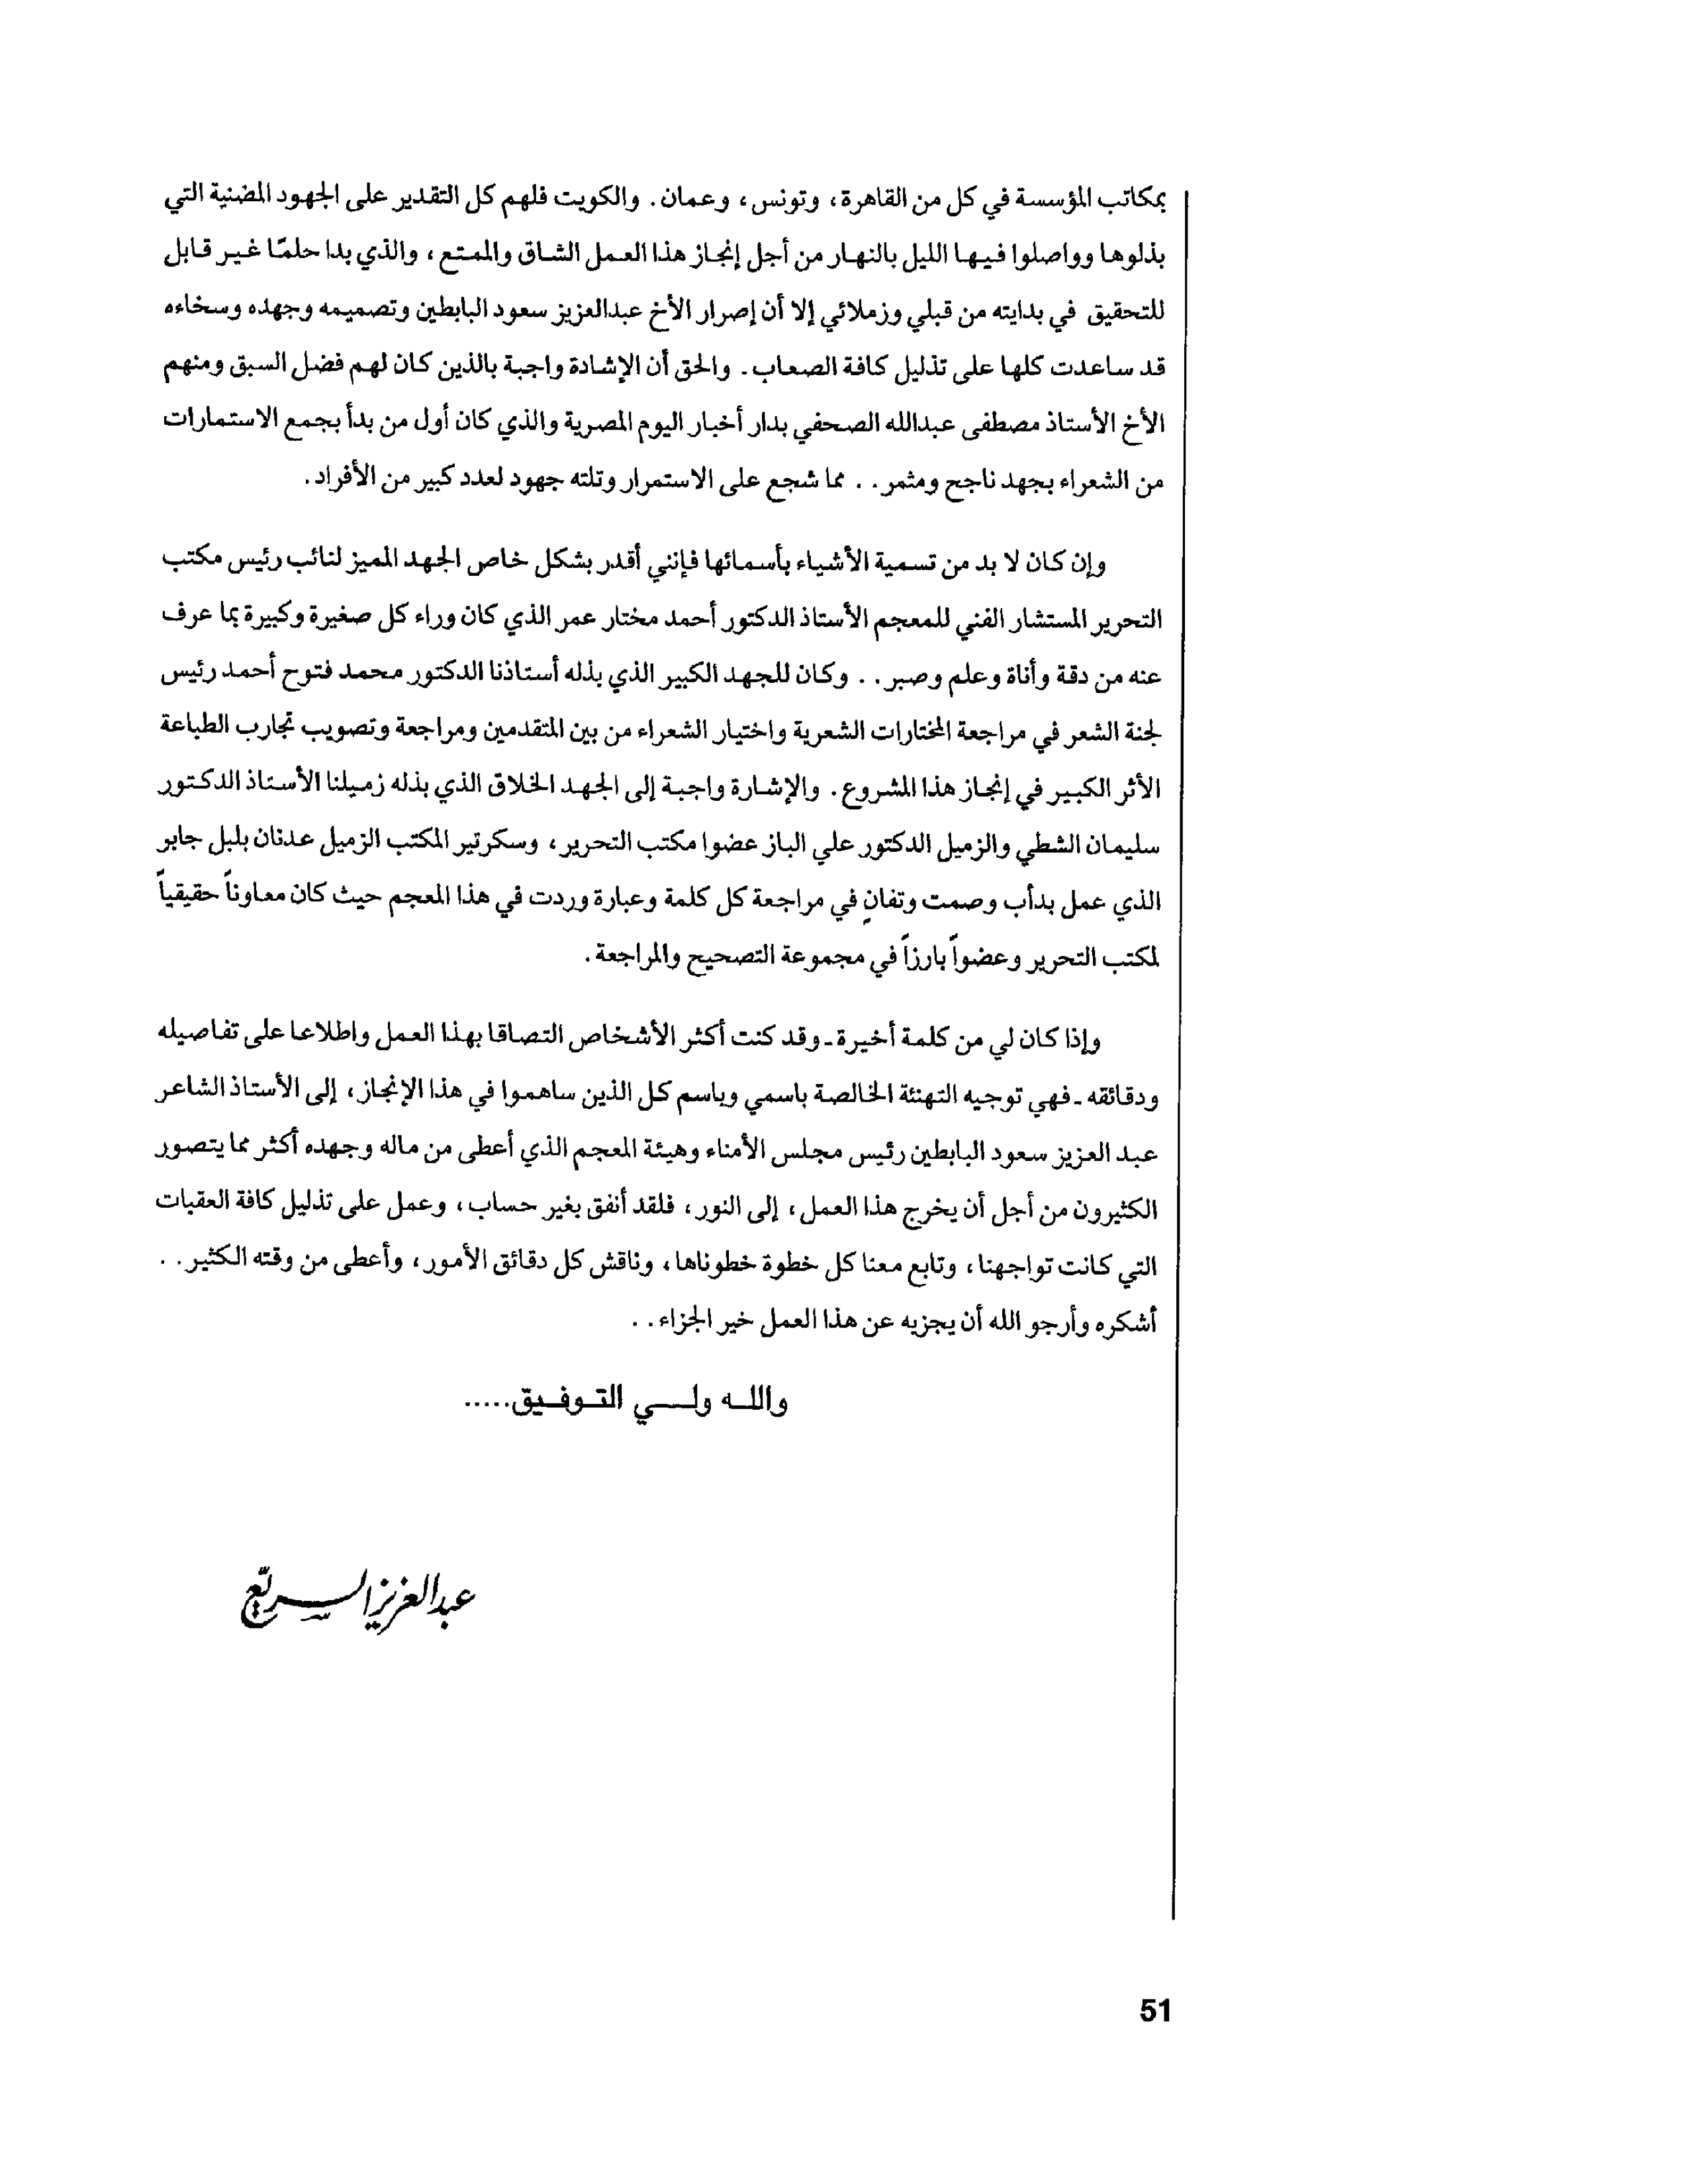 بمكاتب المؤسسة في كل من القاهرة، وتونس، وعمان. والكويت فلهم كل التقدير على الجهود المضنية التي
بذلوها وواصلوا فيها الليل بالنهار من أجل إنجاز هذا العمل الشاق والممتع، والذي بدا حلمًا غير قابل
للتحقيق في بدايته من قبلي وزملائي إلا أن إصرار الأخ عبدالعزيز سعود البابطين وتصميمه وجهده وسخاءه
قد ساعدت كلها على تذليل كافة الصعاب. والحق أن الإشادة واجبة بالذين كان لهم فضل السبق ومنهم
الأخ الأستاذ مصطفى عبدالله الصحفي بدار أخبار اليوم المصرية والذي كان أول من بدأ بجمع الاستمارات
من الشعراء بجهد ناجح ومثمر. . مما شجع على الاستمرار وتلته جهود لعدد كبير من الأفراد.
وإن كان لا بد من تسمية الأشياء بأسمائها فإنني أقدر بشكل خاص الجهد المميز لنائب رئيس مكتب
التحرير المستشار الفني للمعجم الأستاذ الدكتور أحمد مختار عمر الذي كان وراء كل صغيرة وكبيرة بما عرف
عنه من دقة وأناة وعلم وصبر. . وكان للجهد الكبير الذي بذله أستاذنا الدكتور محمد فتوح أحمد رئيس
لجنة الشعر في مراجعة المختارات الشعرية واختيار الشعراء من بين المتقدمين ومراجعة وتصويب تجارب الطباعة
الأثر الكبير في إنجاز هذا المشروع. والإشارة واجبة إلى الجهد الخلاق الذي بذله زميلنا الأستاذ الدكتور
سليمان الشطي والزميل الدكتور علي الباز عضوا مكتب التحرير، وسكرتير المكتب الزميل عدنان بلبل جابر
الذي عمل بدأب وصمت وتفانٍ في مراجعة كل كلمة وعبارة وردت في هذا المعجم حيث كان معاوناً حقيقياً
لمكتب التحرير وعضواً بارزاً في مجموعة التصحيح والمراجعة.
وإذا كان لي من كلمة أخيرة ـ وقد كنت أكثر الأشخاص التصاقا بهذا العمل واطلاعا على تفاصيله
ودقائقه ـ فهي توجيه التهنئة الخالصة باسمي وباسم كل الذين ساهموا في هذا الإنجاز، إلى الأستاذ الشاعر
عبد العزيز سعود البابطين رئيس مجلس الأمناء وهيئة المعجم الذي أعطى من ماله وجهده أكثر مما يتصور
الكثيرون من أجل أن يخرج هذا العمل، إلى النور، فلقد أنفق بغير حساب، وعمل على تذليل كافة العقبات
التي كانت تواجهنا، وتابع معنا كل خطوة خطوناها، وناقش كل دقائق الأمور، وأعطى من وقته الكثير. .
أشكره وأرجو الله أن يجزيه عن هذا العمل خير الجزاء. .
واللـه ولـــي التـوفـيق.....
عبدالعزيز السريّع
51